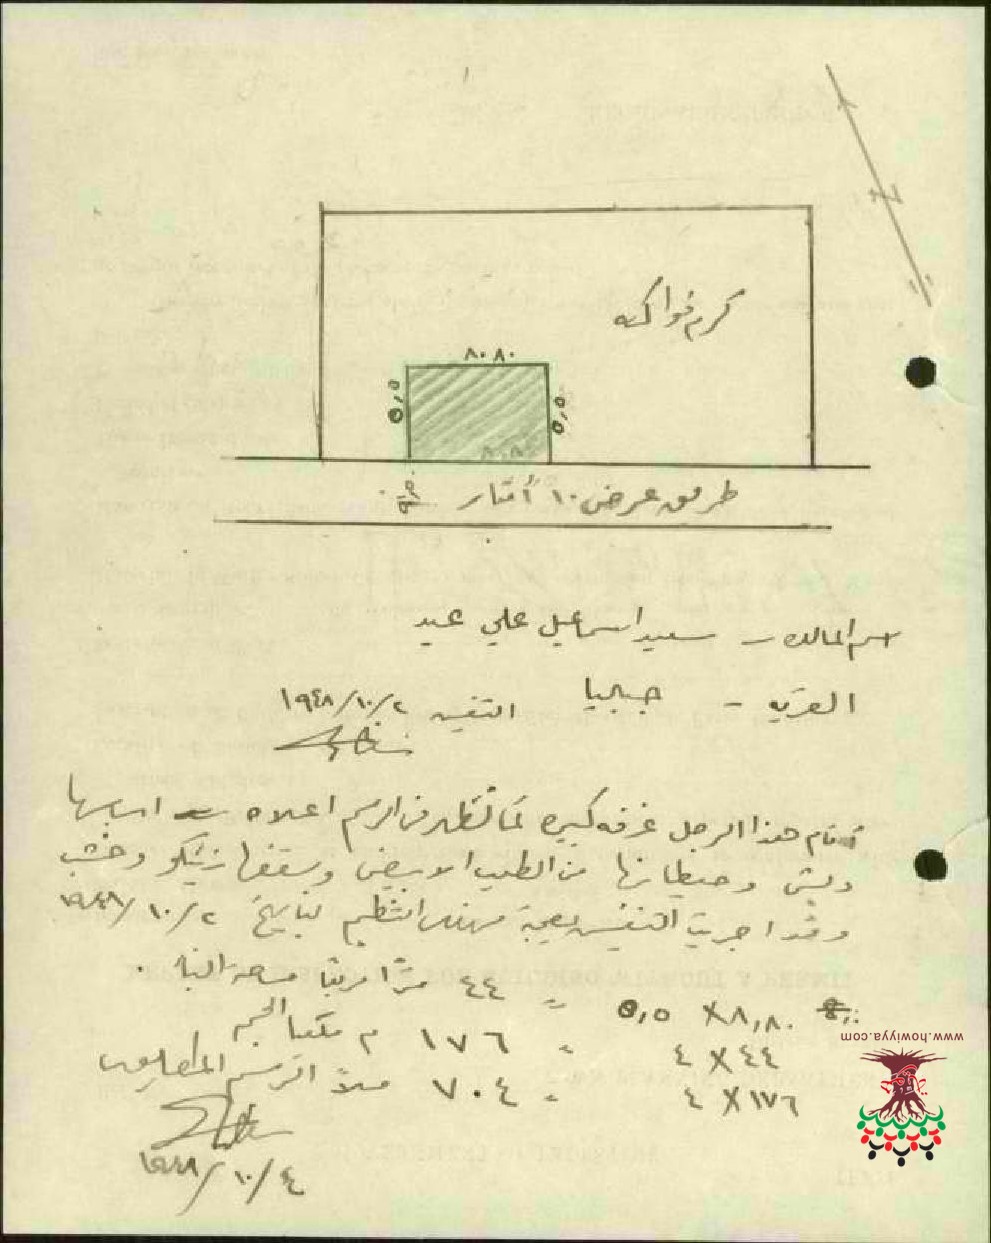 كرم فواكه
٨٠٨٠
٥,٥
٥,٥٠
طريق عرض ١٠ أمتار
اسم المالك - سعيد اسماعيل علي عيد
القرية - جباليا التفتيش ١٩٤٨/١٠/٢
أقام هذا الرجل غرفه كبيره كما تظهر من الرسم اعلاه اساسها
دبش وحيطانها من الطوب الابيض وسقفها زينكو وخشب
وقد اجريت التفتيش بصحبة مهندس التنظيم بتاريخ ١٩٤٨/١٠/٢
٨,٨٠ X ٥,٥ = ٤٤ مترا مربعا مساحة البناء
٤٤ X ٤ = ١٧٦ م مكعبا الحجم
١٧٦ X ٤ = ٧٠٤ ملاً الرسم المطلوب
١٩٤٨/١٠/٤
www.howiyya.com